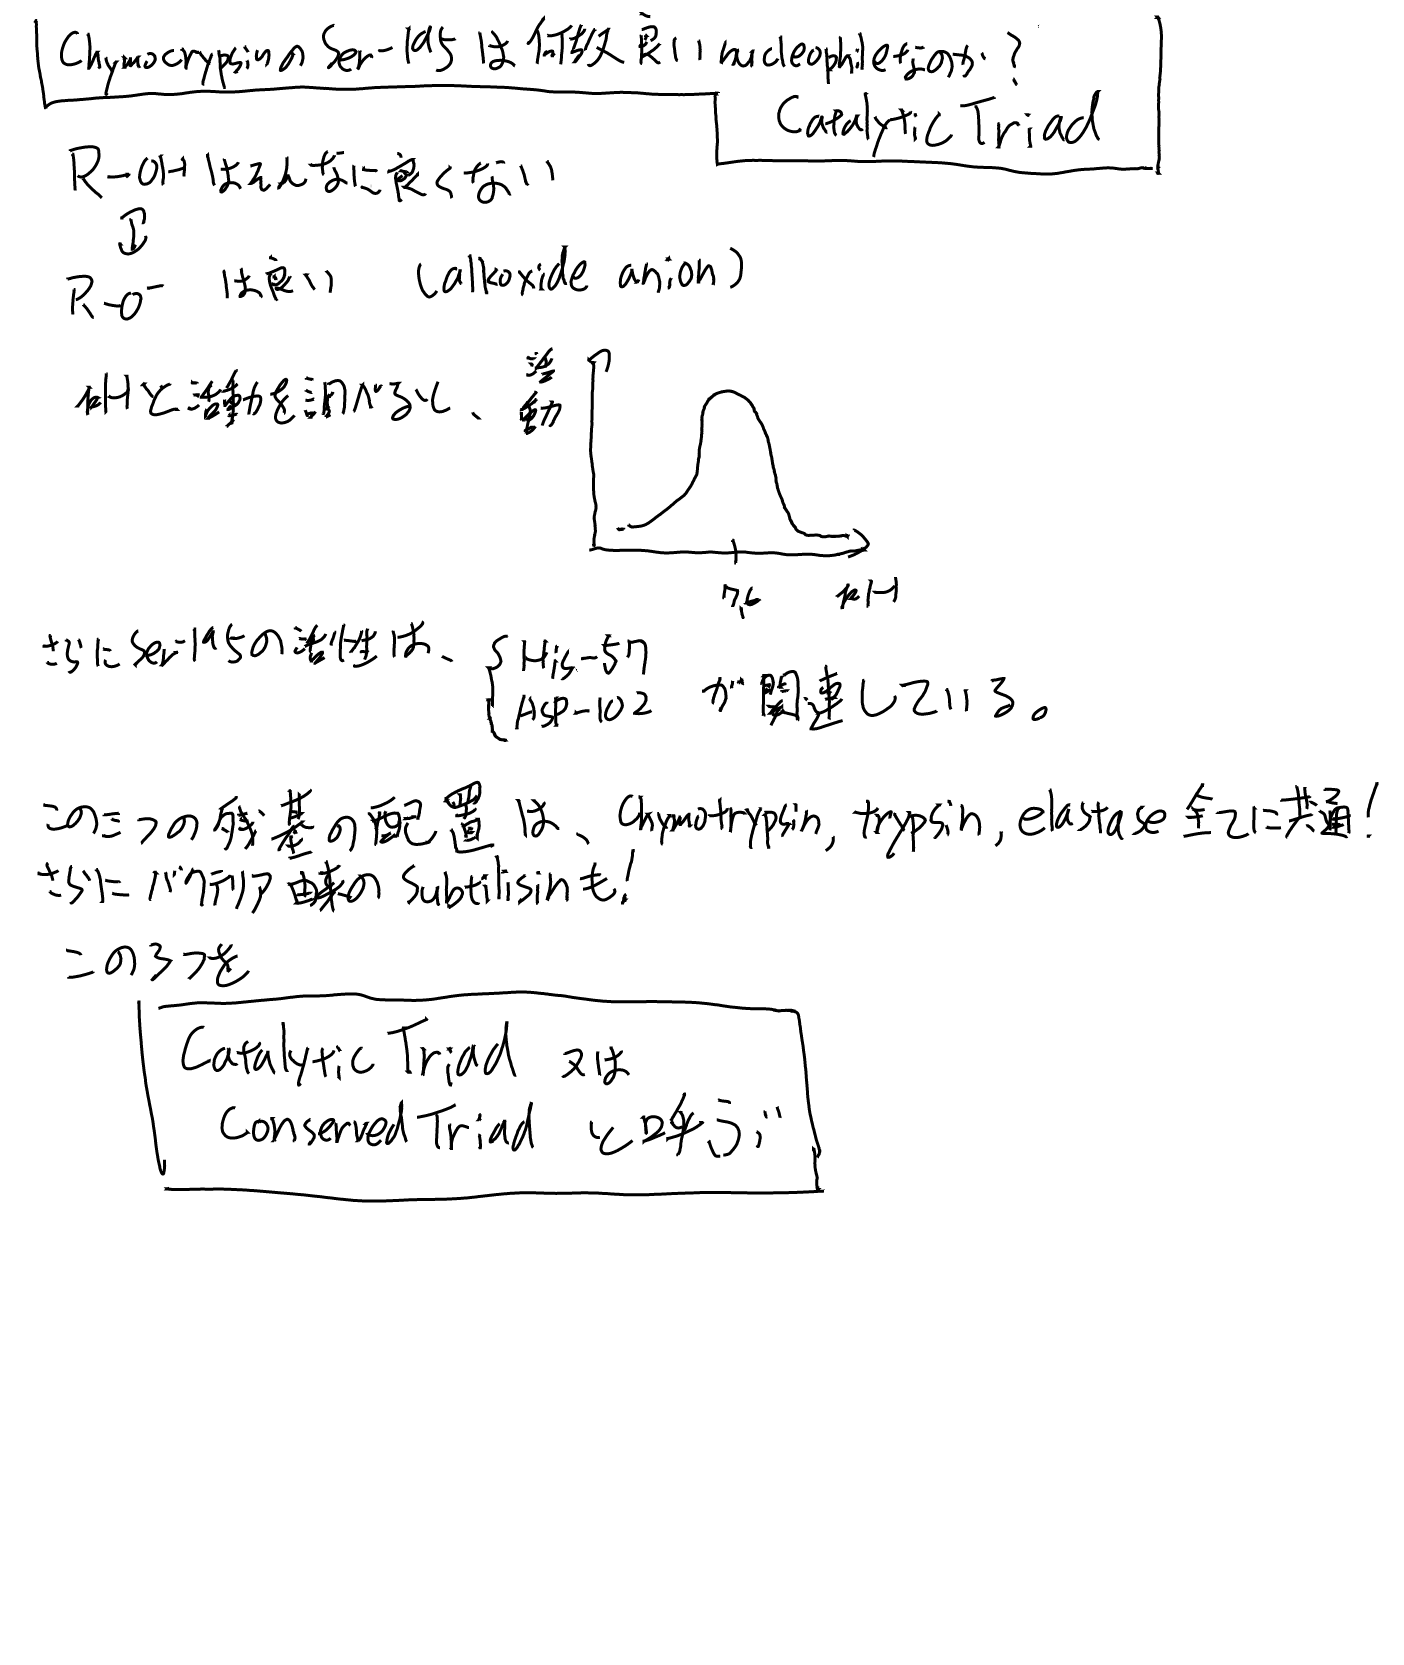 ChymocrypsinのSer-195は何故良いnucleophileなのか?
Catalytic Triad
R-OHはそんなに良くない
R-O⁻ は良い (alkoxide anion)
pHと活動を調べると、
活動
7.6 pH
さらにSer-195の活性は、
His-57
Asp-102 が関連している。
この三つの残基の配置は、Chymotrypsin, trypsin, elastase全てに共通!
さらにバクテリア由来のSubtilisinも!
この3つを
Catalytic Triad 又は
Conserved Triad と呼ぶ